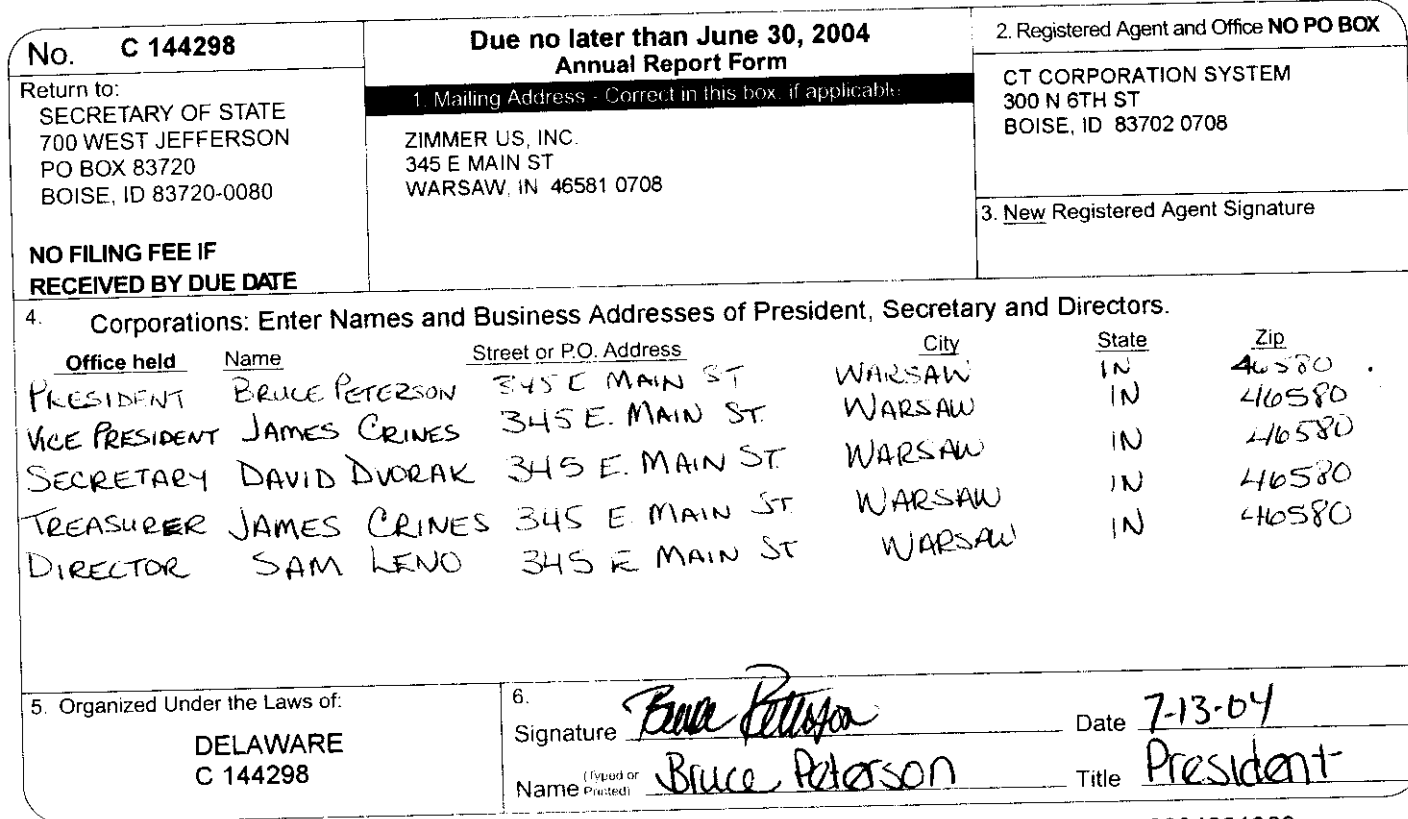 No. C 144298
Return to:
SECRETARY OF STATE
700 WEST JEFFERSON
PO BOX 83720
BOISE, ID 83720-0080
NO FILING FEE IF
RECEIVED BY DUE DATE
Due no later than June 30, 2004
Annual Report Form
1. Mailing Address - Correct in this box, if applicable.
ZIMMER US, INC.
345 E MAIN ST
WARSAW, IN 46581 0708
2. Registered Agent and Office NO PO BOX
CT CORPORATION SYSTEM
300 N 6TH ST
BOISE, ID 83702 0708
3. New Registered Agent Signature
4. Corporations: Enter Names and Business Addresses of President, Secretary and Directors.
Office held Name Street or P.O. Address City State Zip
PRESIDENT BRUCE PETERSON 345 E MAIN ST WARSAW IN 46580
VICE PRESIDENT JAMES CRINES 345 E. MAIN ST. WARSAW IN 46580
SECRETARY DAVID DVORAK 345 E. MAIN ST. WARSAW IN 46580
TREASURER JAMES CRINES 345 E MAIN ST WARSAW IN 46580
DIRECTOR SAM LENO 345 E MAIN ST WARSAW IN 46580
5. Organized Under the Laws of:
DELAWARE
C 144298
6.
Signature Bruce Peterson Date 7-13-04
Name (Typed or Printed) Bruce Peterson Title President